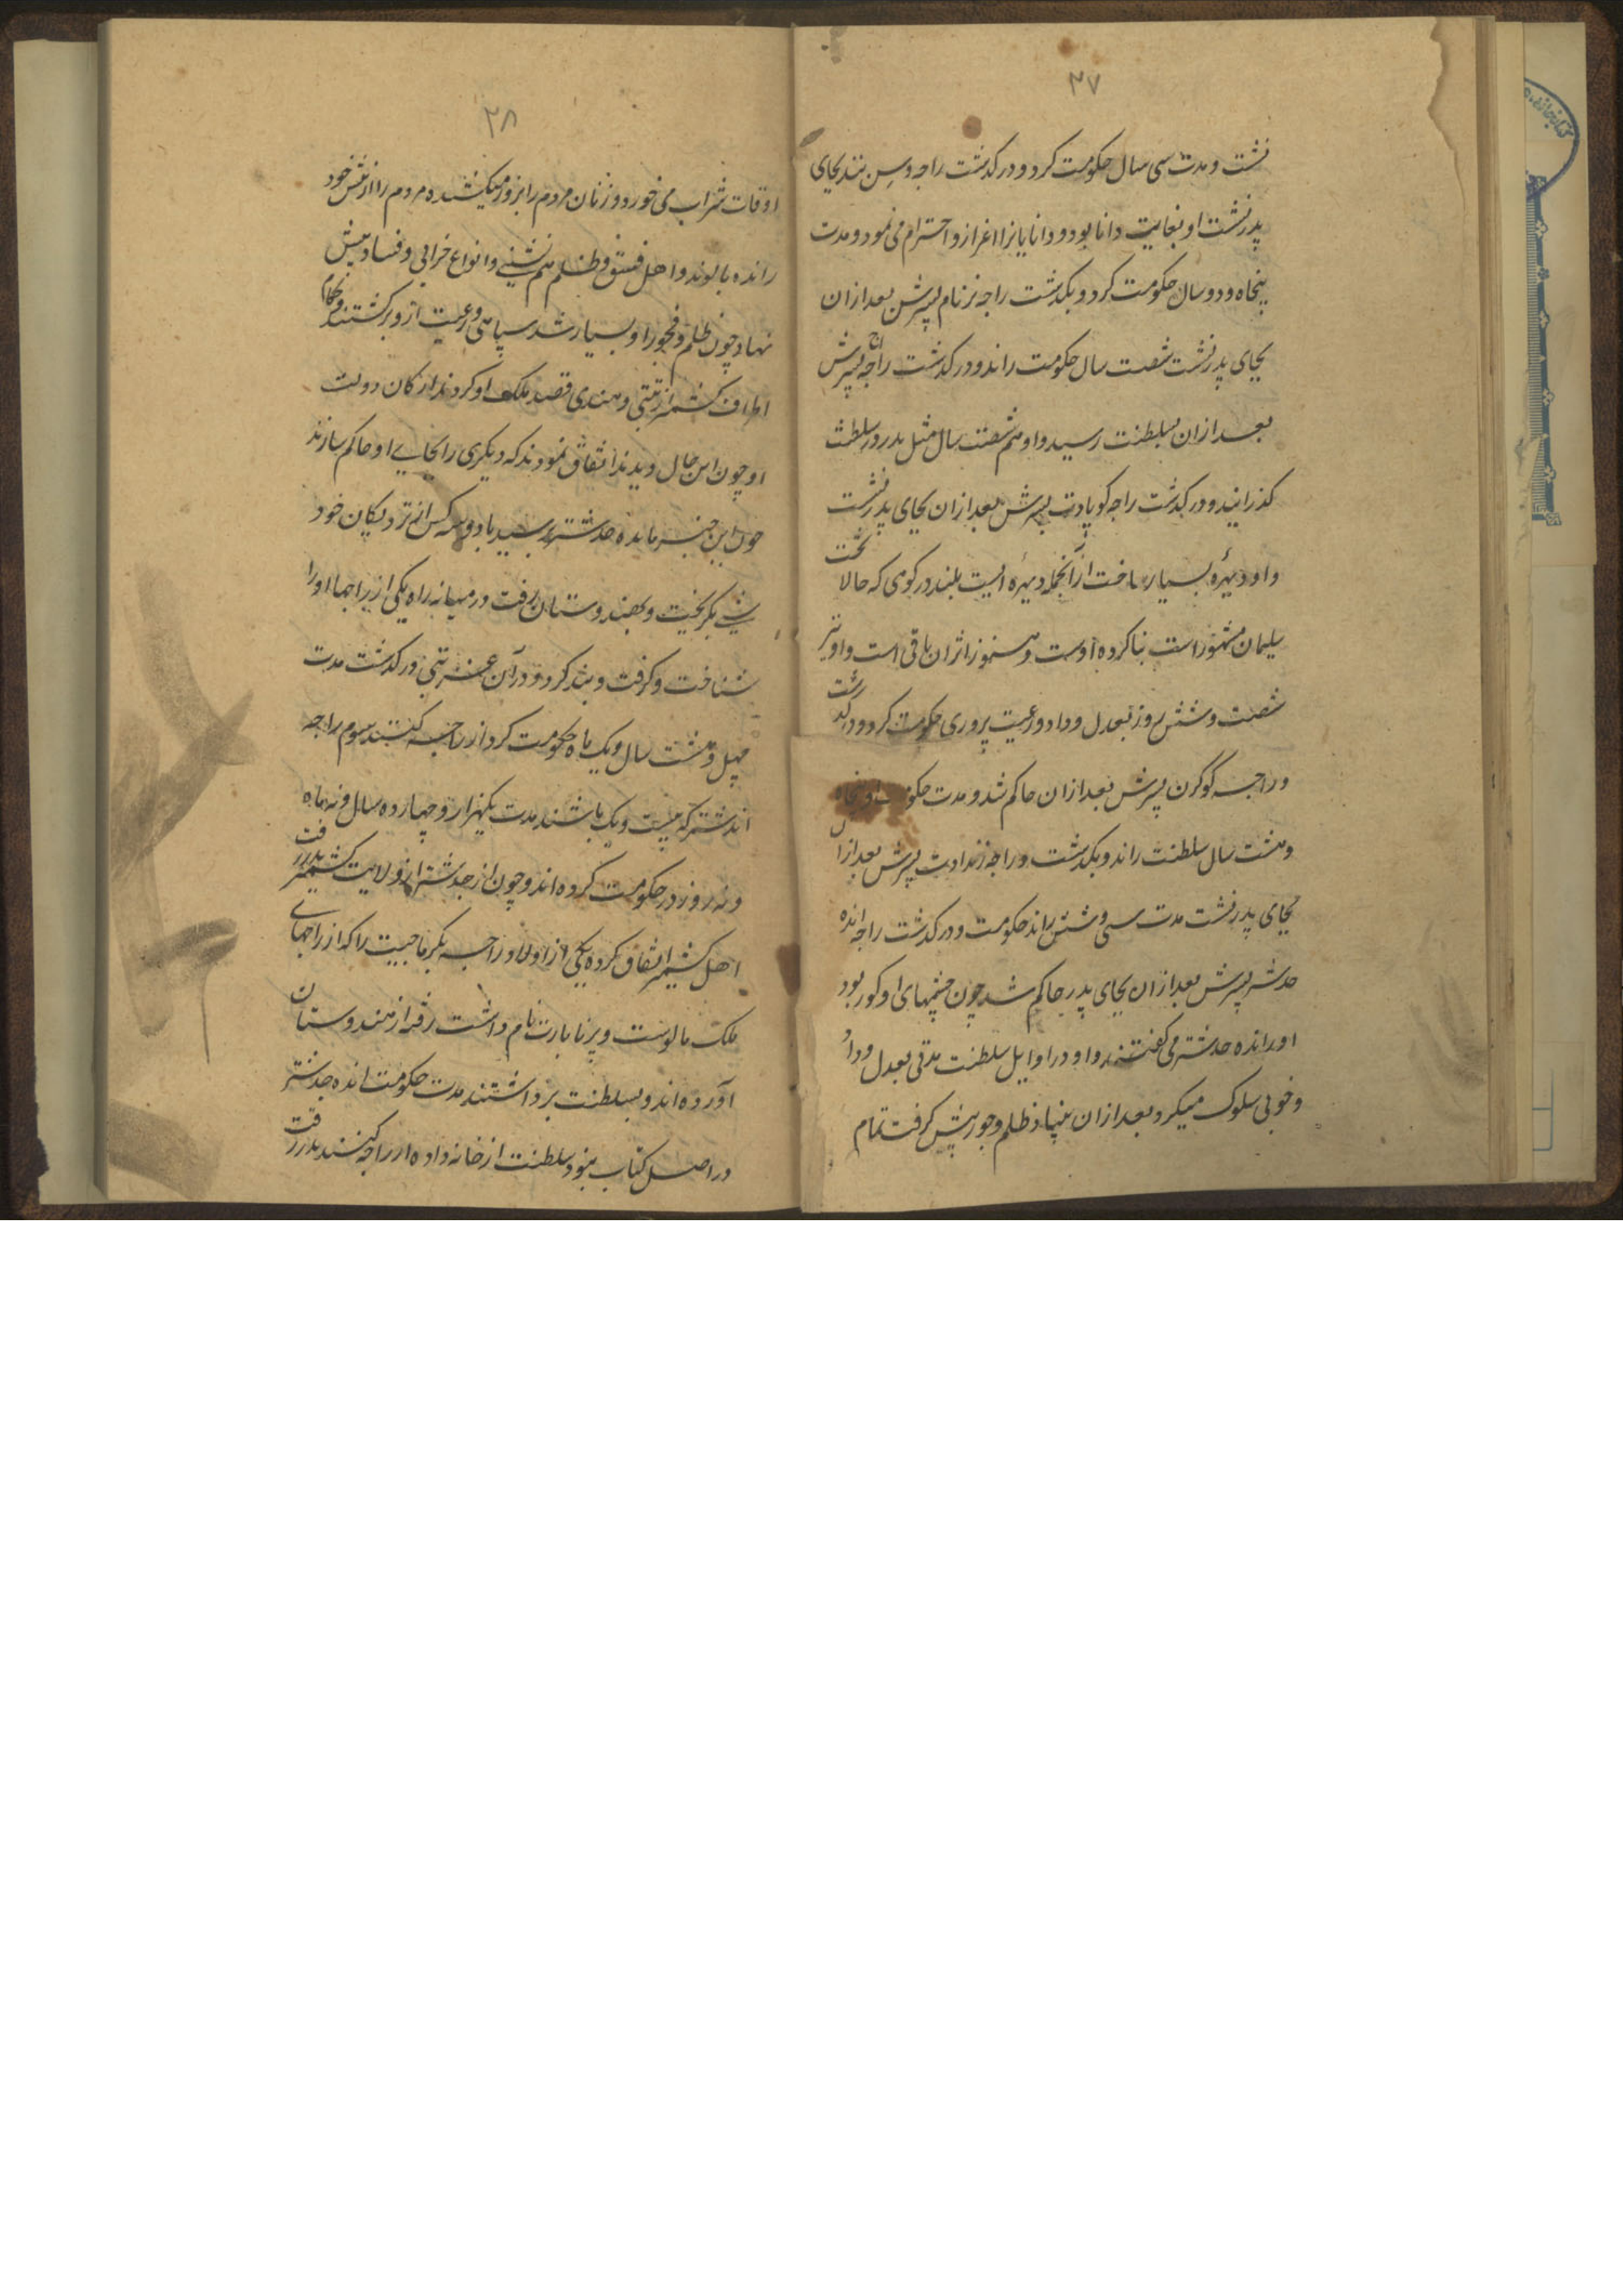 ۳۷
نشت و مدت سی سال حکومت کرد و درکذشت راجه وسن نند بجای
پدر نشت او بغایت دانا بود و دانایانرا اعزاز و احترام می نمود و مدت
پنجاه و دو سال حکومت کرد و بکذشت راجه نر نام پسرش بعد ازان
بجای پدر نشت شصت سال حکومت راند و درکذشت راجه اج پسرش
بعد ازان بسلطنت رسید و او هم شصت سال مثل پدر در سلطنت
کذرانید و درکذشت راجه کوپادت پسرش بعد ازان بجای پدر نشت
و او دیهره بسیار ساخت ازآنجمله دیهره ایست بلند در کوهی که حالا تخت
سلیمان مشهور است بنا کرده اوست و هنوز اثر ان باقی است و او نیز
شصت و شش روز بعدل و داد و رعیت پروری حکومت کرد و درکذشت
و راجه گوگرن پسرش بعد ازان حاکم شد و مدت حکومت او پنجاه
و هشت سال سلطنت راند و بکذشت و راجه نرندادت پسرش بعد ازان
بجای پدر نشت مدت سی و شش راند حکومت و درکذشت راجه انده
جدشتر پسرش بعد ازان بجای پدر حاکم شد چون چشمهای او کور بود
اورا انده جدشتر می کفتند و او در اوایل سلطنت مدتی بعدل و داد
و خوبی سلوک میکرد بعد ازان بنیاد ظلم و جور پیش کرفت تمام
۳۸
اوقات شراب می خورد و زنان مردم را بزور میکشیده مردم را از پیش خود
رانده با لوند و اهل فسق و ظلم هم نشینی و انواع خرابی و فساد پیش
نهاد چون ظلم و فجور او بسیار شد سپاهی و رعیت ازو برکشتند و حکام
اطراف کشمیر از تبتی و هندی قصد ملک او کردند ارکان دولت
او چون این حال دیدند اتفاق نمودند که دیکری را بجای او حاکم سازند
چون این خبر بانده جدشتر رسید با دو سه کس از نزدیکان خود
بکریخت و بهندوستان رفت در میانه راه یکی از راجها او را
شناخت و کرفت و بند کرد و در آن درکذشت مدت
چهل و هشت سال و یک ماه حکومت کرد از راجه کنند سوم راجه
اند شتر که بیست و یک باشند مدت یکهزار و چهارده سال و نه ماه
و نه روز در حکومت کرده اند و چون انده جدشتر از ولایت کشمیر بدر رفت
اهل کشمیر اتفاق کرده یکی از اولاد راجه بکرماجیت را که از راجهای
ملک مالوست و پرتابادت نام داشت رفته از هندوستان
آورده اند و بسلطنت برداشتند مدت حکومت انده جدشتر
در اصل کتاب نبود سلطنت از خانه واده راجه کنند بدر رفت